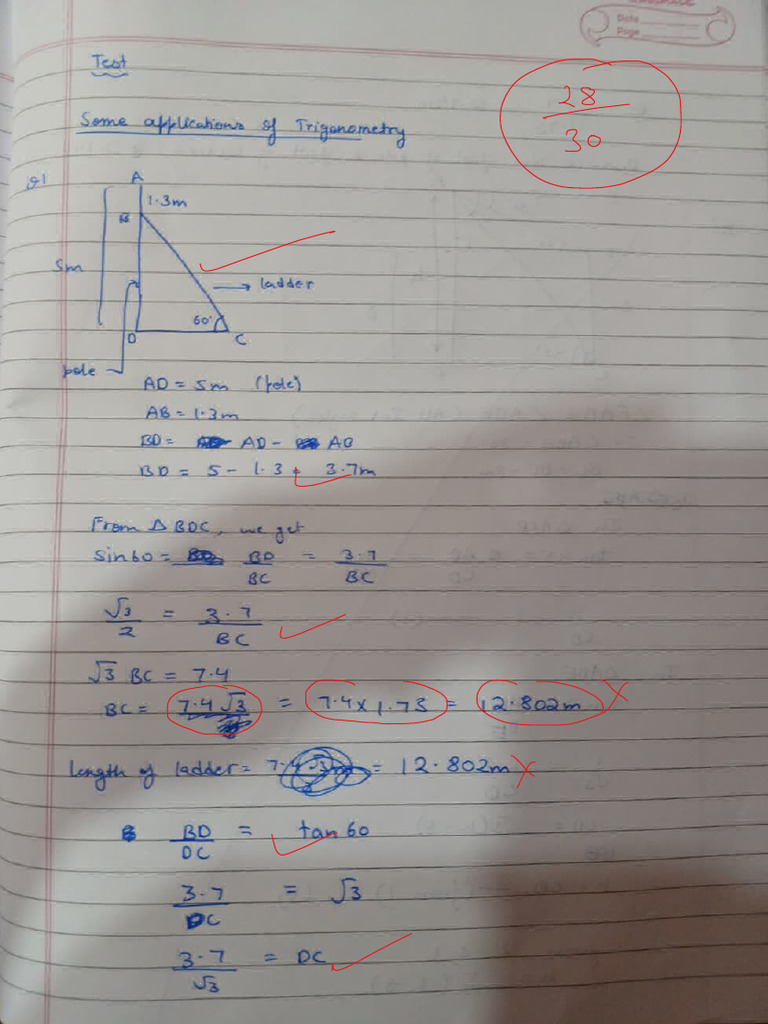 Date
Page
Test
28
30
Some applications of Trigonometry
Q1
A
1.3m
B
5m
ladder
60°
D
C
pole
AD = 5m (pole)
AB = 1.3m
BD = AD - AB
BD = 5 - 1.3 = 3.7m
From △ BDC, we get
sin60 = BD/BC = 3.7/BC
√3/2 = 3.7/BC
√3 BC = 7.4
BC = 7.4√3 = 7.4 x 1.73 = 12.802m
length of ladder = = 12.802m
BD/DC = tan 60
3.7/DC = √3
3.7/√3 = DC